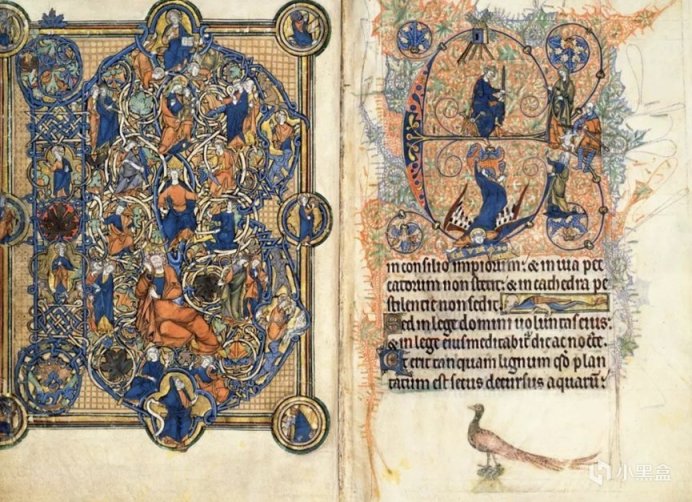 in consilio impiorum: & in uia pec
catorum non stetit: & in cathedra pe
stilentie non sedit.
Sed in lege domini uoluntas eius:
& in lege eius meditabit᷑ die ac nocte.
Et erit tanquam lignum qd̓ plan
tatum est secus decursus aquarum:
小黑盒